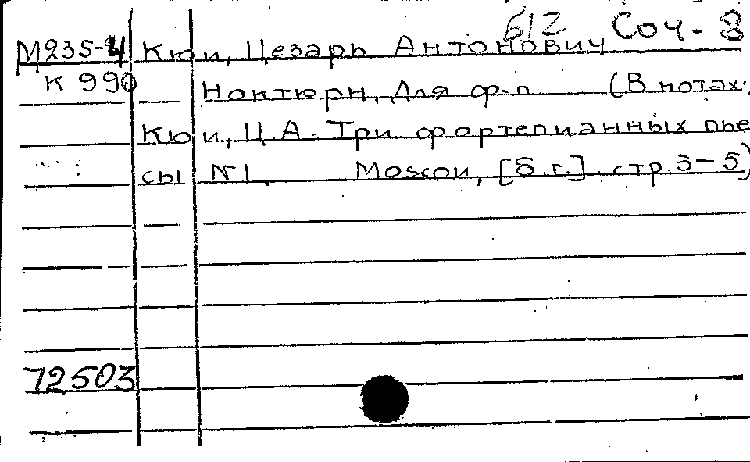 б/2 Соч. 8
М235-4 Кюи, Цезарь Антонович
К 990 Ноктюрн, для ф-п (В нотах:
Кюи, Ц.А. Три фортепианных пье
сы №1, Moscou, [б.г.] стр. 3-5)
72503